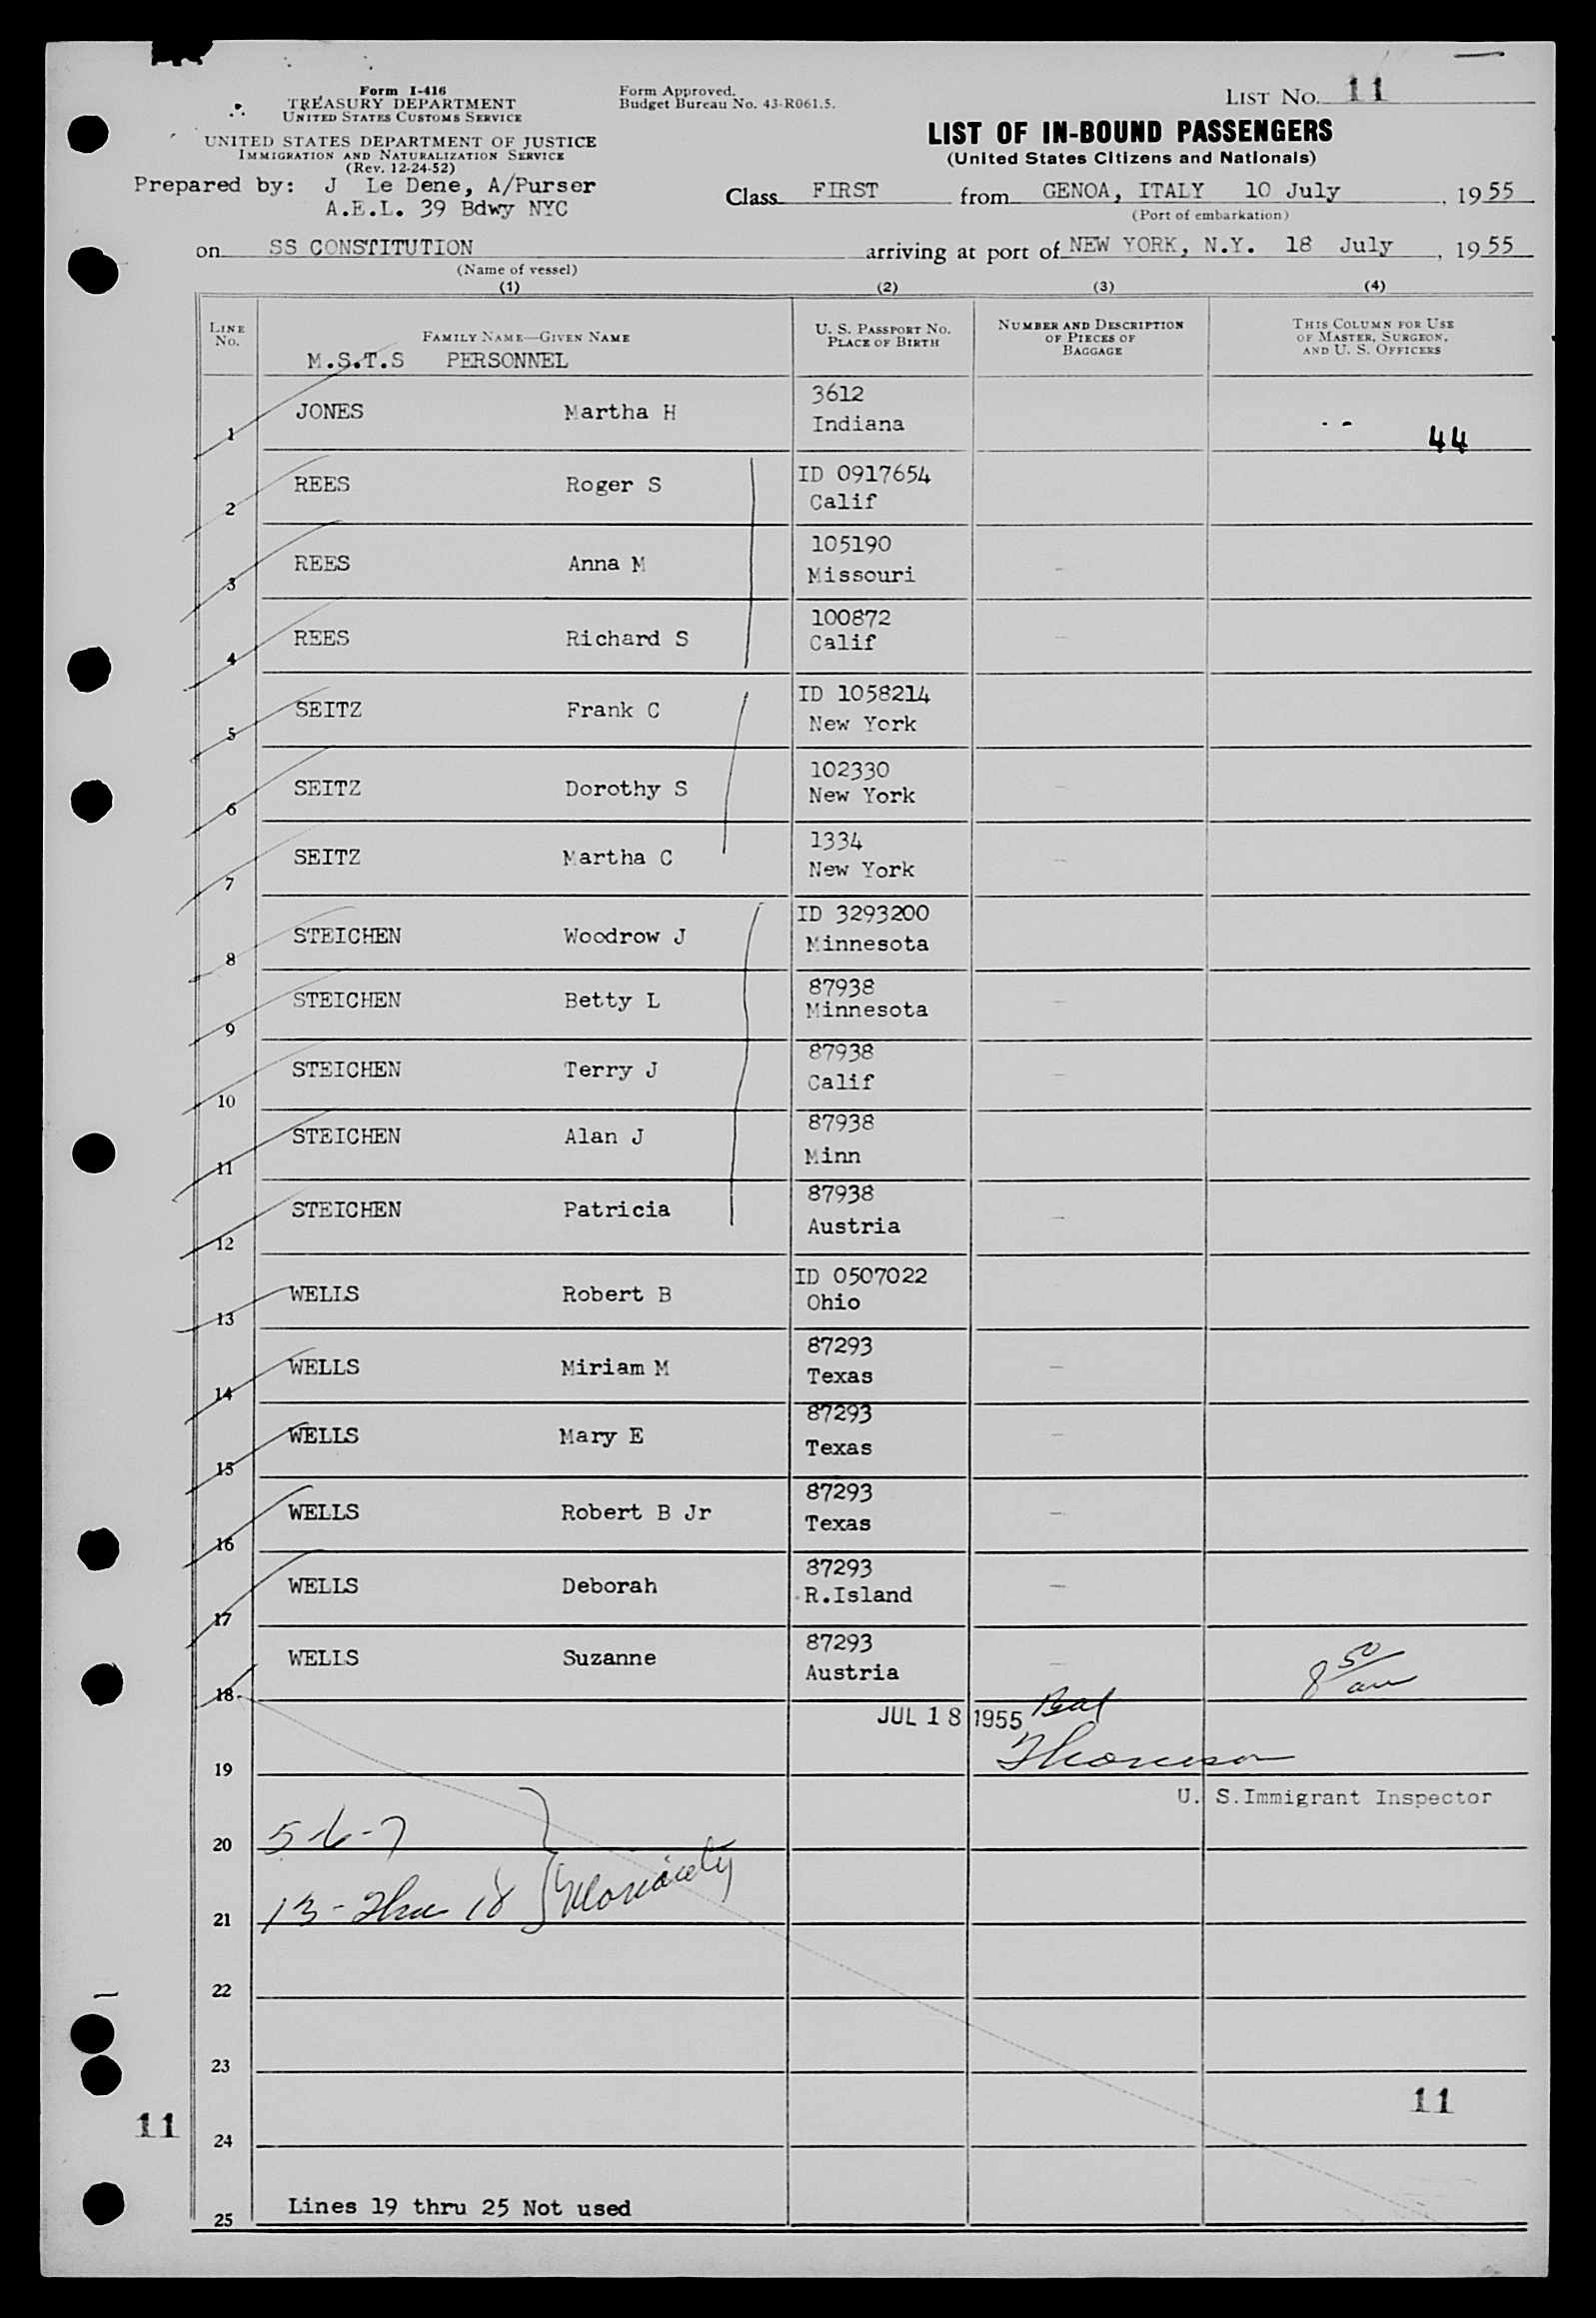 Form I-416
TREASURY DEPARTMENT
UNITED STATES CUSTOMS SERVICE
UNITED STATES DEPARTMENT OF JUSTICE
IMMIGRATION AND NATURALIZATION SERVICE
(Rev. 12-24-52)
Form Approved.
Budget Bureau No. 43-R061.5.
LIST NO. 11
LIST OF IN-BOUND PASSENGERS
(United States Citizens and Nationals)
Prepared by: J Le Dene, A/Purser
A.E.L. 39 Bdwy NYC
Class FIRST from GENOA, ITALY 10 July, 1955
(Port of embarkation)
on SS CONSTITUTION arriving at port of NEW YORK, N.Y. 18 July, 1955
(Name of vessel)
(1) (2) (3) (4)
LINE NO.
FAMILY NAME—GIVEN NAME
U. S. PASSPORT NO.
PLACE OF BIRTH
NUMBER AND DESCRIPTION
OF PIECES OF
BAGGAGE
THIS COLUMN FOR USE
OF MASTER, SURGEON,
AND U. S. OFFICERS
M.S.T.S PERSONNEL
1 JONES Martha H 3612
Indiana
44
2 REES Roger S ID 0917654
Calif
3 REES Anna M 105190
Missouri
4 REES Richard S 100872
Calif
5 SEITZ Frank C ID 1058214
New York
6 SEITZ Dorothy S 102330
New York
7 SEITZ Martha C 1334
New York
8 STEICHEN Woodrow J ID 3293200
Minnesota
9 STEICHEN Betty L 87938
Minnesota
10 STEICHEN Terry J 87938
Calif
11 STEICHEN Alan J 87938
Minn
12 STEICHEN Patricia 87938
Austria
13 WELLS Robert B ID 0507022
Ohio
14 WELLS Miriam M 87293
Texas
15 WELLS Mary E 87293
Texas
16 WELLS Robert B Jr 87293
Texas
17 WELLS Deborah 87293
R.Island
18 WELLS Suzanne 87293
Austria
8 50 am
JUL 18 1955
19
U. S. Immigrant Inspector
20 5-6-7
21 13-Thru 18 } Moriarity
22
23
11
11
24
25 Lines 19 thru 25 Not used